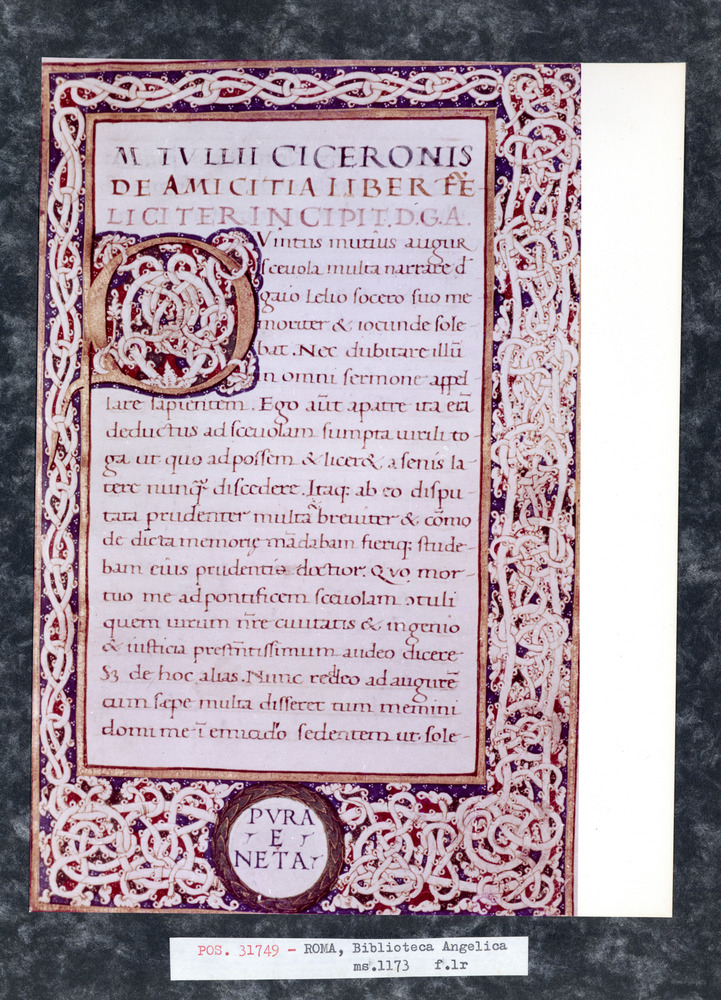 M. TVLLII CICERONIS
DE AMICITIA LIBER FĒ-
LICITER INCIPIT. D.G.A.
Vintus mutius augur
sceuola multa narrare d̄
gaio lelio socero suo me
moriter & iocunde sole-
bat. Nec dubitare illū
in omni sermone appel-
lare sapientem. Ego aūt apatre ita erā
deductus ad sceuolam sumpta uirili to-
ga ut quo ad possem & licer&, a senis la-
tere nunq̄ discedere. Itaq; ab eo dispu-
tata prudenter multa breuiter & cōmo
de dicta memorię mādabam fieriq; stude-
bam eius prudentia doctior. Quo mor-
tuo me ad pontificem sceuolam ɔtuli
quem uirum nr̄e ciuitatis & ingenio
& iusticia prestn̄tissimum audeo dicere-
Sꝫ de hoc alias. Nunc redeo ad augurē
cum sæpe multa disseret tum memini
domi me ī emiciclo sedentem ut sole-
PVRA
E
NETA.
POS. 31749 - ROMA, Biblioteca Angelica
ms.1173 f.1r